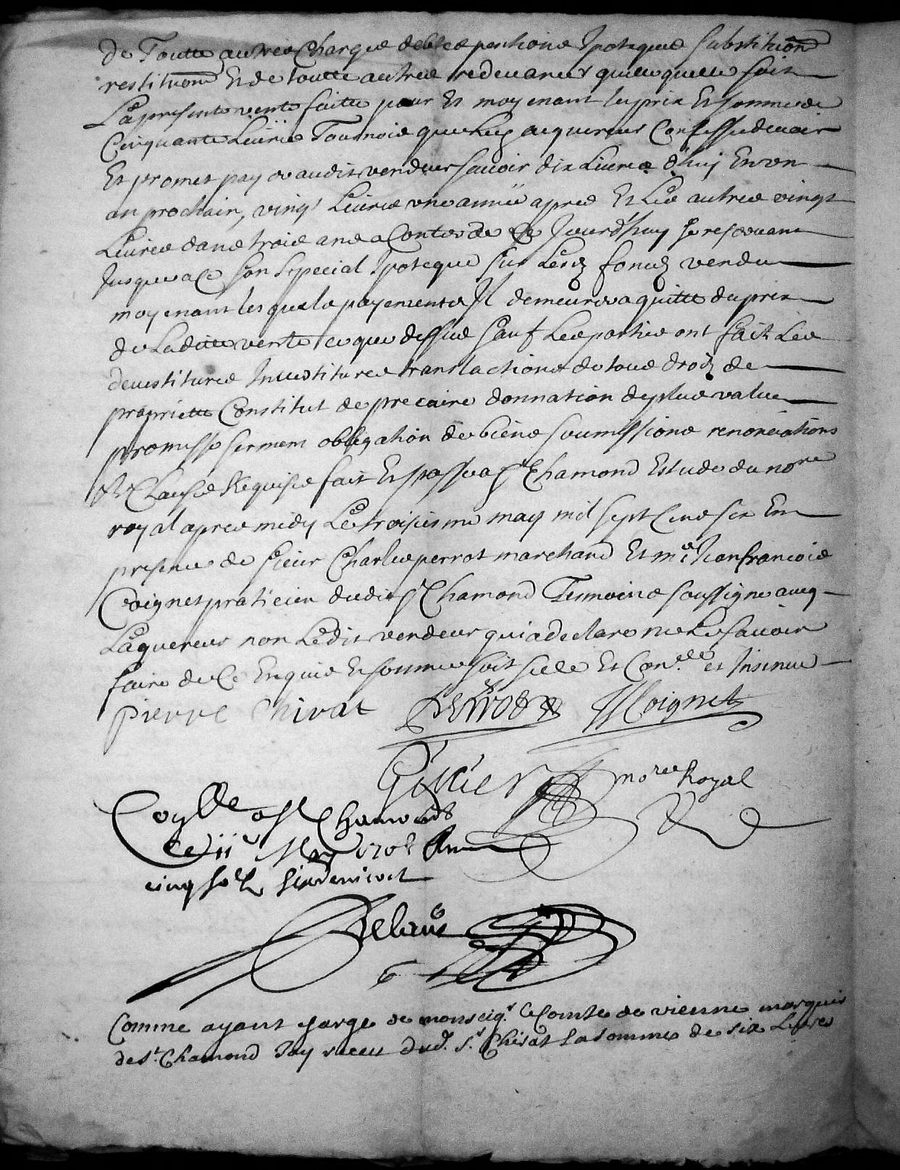 de Toutte autres Charges debtes pentions Ipoteques Substitution
restitution Et de toutte autres redevances quelqueelle soit
La presente vente faitte pour Et moyenant le prix Et somme de
Cinquante Livres Tournois que led acquereur Confesse devoir
Et promet payer audit vendeur savoir dix Livres d'huy En un
an prochain, vingt Livres une année apres Et Les autres vingt
Livres dans trois ans a Conter de Ce Jourd'huy se reservant
Jusques a ce son special Ipoteque sur Lesd fonds vendu
moyenant lesquels payements Il demeurera quitte du prix
de Laditte vente ce que dessus sauf Les parties ont fait Les
devestitures Investitures translactions de tous droits de
propriette Constitut de precaire donnation de plus value
promisse serment obligation de biens soumissions renonciations
Et Clauses Requises fait Et passé a St Chamond Estude du nore
royal apres midy Le troisieme may mil sept Cens six En
presence de sieur Charles perrot marchand Et mre Jean francois
Coignet praticien dudit St Chamond Temoins soussignes avec
Lacquereur non Ledit vendeur qui a declaré ne Le savoir
faire de Ce Enquis Et sommé soit scellé Et Con.lé et Insinué
Pierre Chirat Perrot JfCoignet
Gillier nore Royal
Con.llé a St Chamond
ce 11e May 1706 Receu
cinq sols six deniers
Delavis
6
Comme ayant charge de monseigr le Comte de vienne marquis
de st. Chamond Jay receu dud. sr. Chirat La somme de six Livres